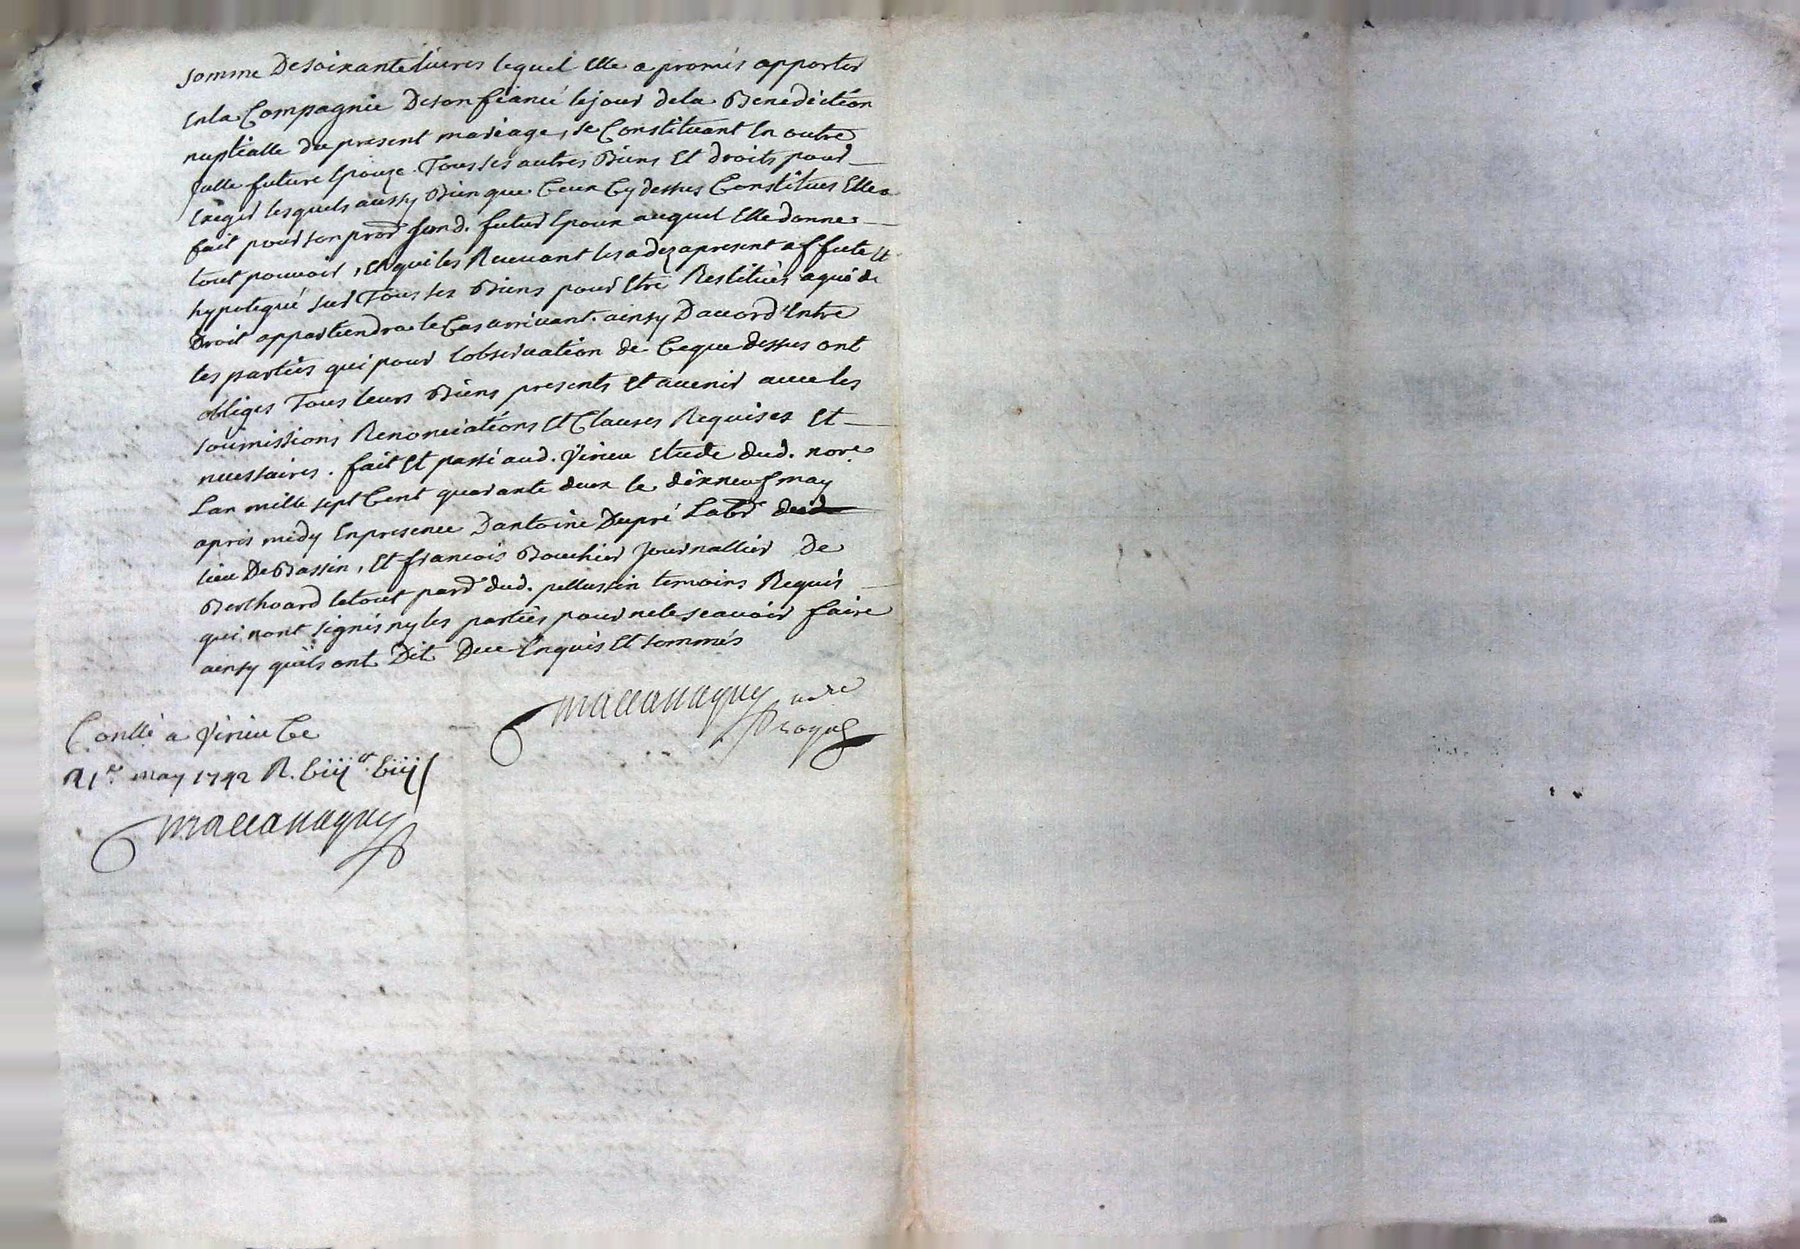 somme De soixante livres lequel Elle a promis apporter
En la Compagnie De son fiancé le jour de la Benediction
nuptialle du present mariage, se Constituant En outre
lad.e future Epouze Tous ses autres Biens Et droits pour
Exiger lesquels aussy Bien que Ceux Cy dessus Constitués Elle a
fait pour son procr led. futur Epoux auquel Elle donne
tout pouvoir, Et qui les Recevant les a dez apresent affecté Et
hypotequé sur Tous ses Biens pour Etre Restitués a qui de
Droit appartiendra le Cas arrivant. ainsy D'accord Entre
les parties qui pour l'observation de Ceque dessus ont
obligés Tous leurs Biens presents Et avenir avec les
soumissions Renonciations Et Clauses Requises Et
necessaires. fait Et passé aud. Virieu Etude dud. nore
L'an mille sept Cent quarante deux le dixneuf may
apres midy En presence D'antoine Dupré Labr
lieu De Bassin, Et francois Bouchier Journallier De
Berthoard le tout parr dud. pellussin temoins Requis
qui n'ont signés ny les parties pour ne le scavoir faire
ainsy qu'ils ont Dit Dece Enquis Et sommés
nore
Royal
Conllé a Virieu Ce
may 1742 R.